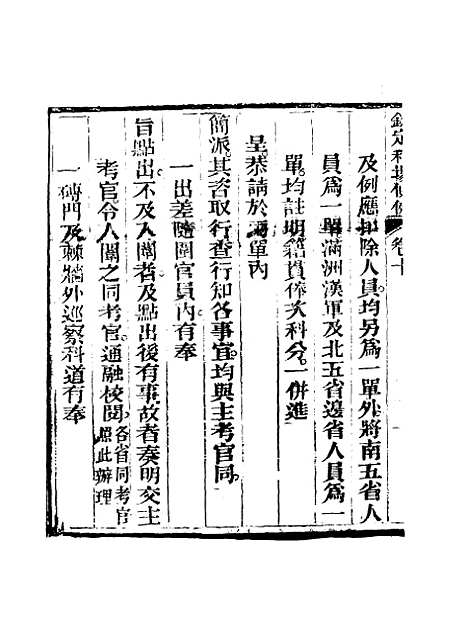 欽定科場條例 卷十
及例應扣除人員均另為一單外將南五省人
員為一單滿洲漢軍及北五省邊省人員為一
單均註明籍貫俸次科分一併進
呈恭請於兩單內
簡派其咨取行查行知各事宜均與主考官同
一出差隨圍官員內有奉
旨點出不及入闈者及點出後有事故者奏明交主
考官令入闈之同考官通融校閱各省同考官照此辦理
一磚門及棘牆外巡察科道有奉